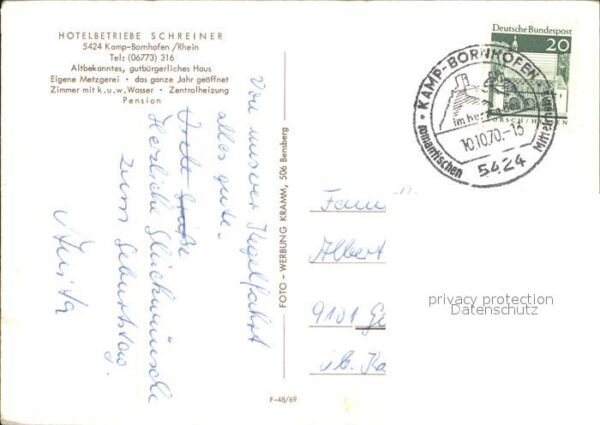 HOTELBETRIEBE SCHREINER
5424 Kamp-Bornhofen /Rhein
Tel: (06773) 316
Altbekanntes, gutbürgerliches Haus
Eigene Metzgerei • das ganze Jahr geöffnet
Zimmer mit k. u. w. Wasser • Zentralheizung
Pension
Von unserer Kegelfahrt
alles gute.
Viele Grüße
Herzliche Glückwünsche
zum Geburtstag.
Anita
FOTO - WERBUNG KRAMM, 506 Bensberg
F-48/69
Deutsche Bundespost
20
LORSCH/HESSEN
KAMP-BORNHOFEN
im Herzen des
romantischen
Mittelrheins
10.10.70.-13
5424
Fam
Albert
9101
privacy protection
Datenschutz